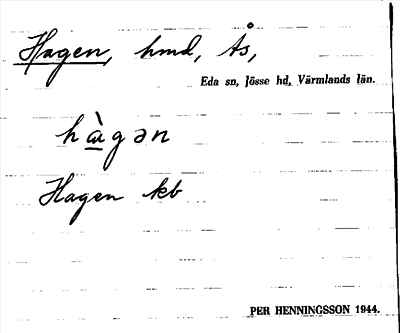 Hagen, hmd, Ås,
Eda sn, Jösse hd, Värmlands län.
hàgən
Hagen kb
PER HENNINGSSON 1944.